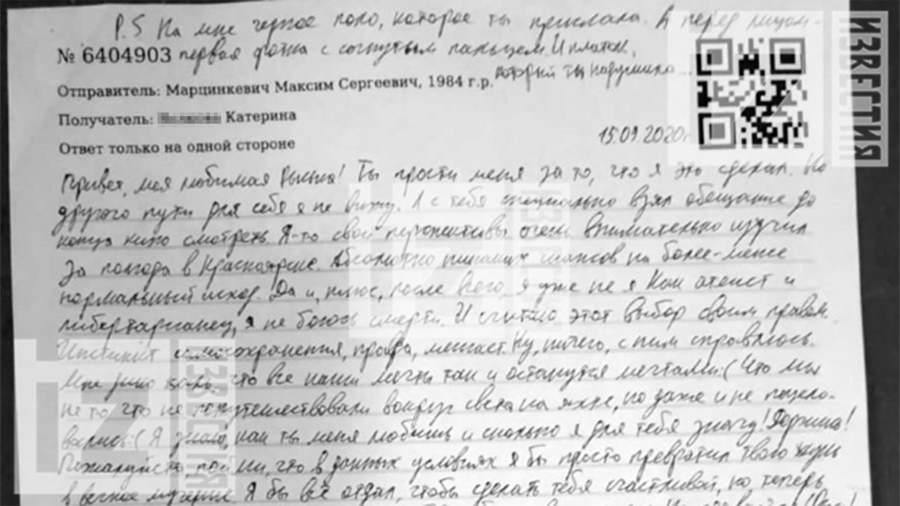 P.S На мне черное поло, которое ты прислала. А перед лицом-
№ 6404903 первая фотка с согнутым пальцем. И платок,
который ты надушила...
Отправитель: Марцинкевич Максим Сергеевич, 1984 г.р.
Получатель: Катерина
15.09.2020г
Ответ только на одной стороне
Привет, моя любимая! Ты прости меня за то, что я это сделал. Но
другого пути для себя я не вижу. А с тебя специально взял обещание до
конца кино смотреть. Я-то свои перспективы очень внимательно изучил
за полгода в Красноярске. Абсолютно никаких шансов на более-менее
нормальный исход. Да и, плюс, после всего, я уже не я. Как атеист и
либертарианец, я не боюсь смерти. И считаю этот выбор своим правом.
Инстинкт самосохранения, правда, мешает. Ну, ничего, с ним справлюсь.
Мне жаль, что все наши мечты так и останутся мечтами:( Что мы
не то, что не попутешествовали вокруг света на яхте, но даже и не поцело-
вались:( Я знаю, как ты меня любишь и сколько я для тебя значу!
Пожалуйста, пойми, что в данных условиях я бы просто превратил твою жизнь
в вечное мучение. Я бы всё отдал, чтобы сделать тебя счастливой, но теперь
ИЗВЕСТИЯ
iz